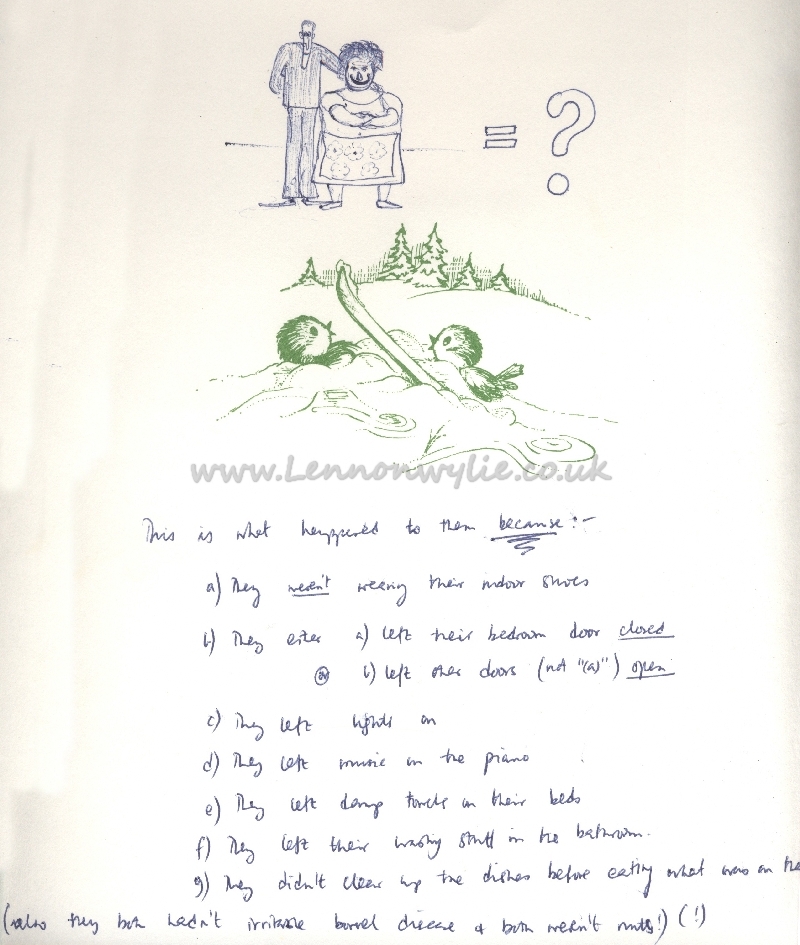 = ?
www.Lennonwylie.co.uk
This is what happened to them because:-
a) They weren't wearing their indoor shoes
b) They either a) left their bedroom door closed
or b) left other doors (not "(a)") open
c) They left lights on
d) They left music on the piano
e) They left damp towels on their beds
f) They left their washing stuff in the bathroom.
g) They didn't clear up the dishes before eating what was on the
(also they both hadn't irritable bowel disease & both weren't nuts!) (!)